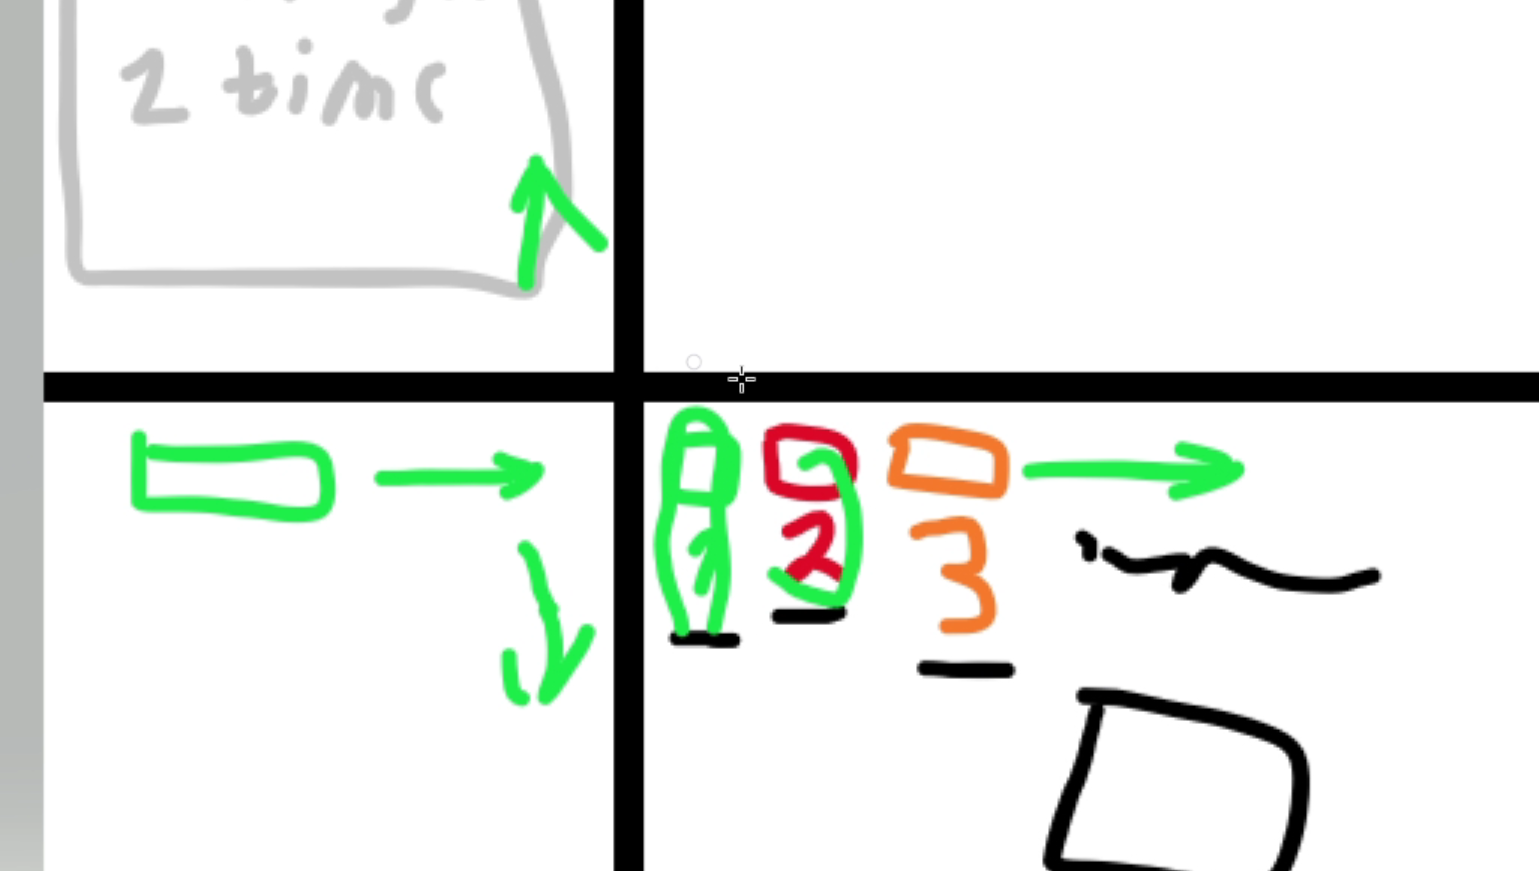 2 time
1 2 3